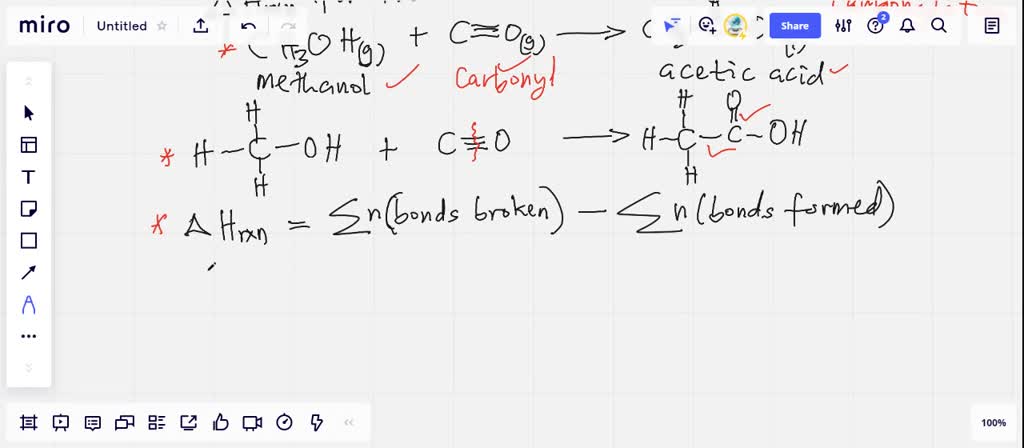 miro Untitled Share 2
* CH3OH(g) + C≡O(g) →
methanol ✓ Carbonyl acetic acid ✓
H H O
* H–C–OH + C≡O → H–C–C–OH
H H
* ΔHrxn = Σn(bonds broken) – Σn(bonds formed)
T
100%